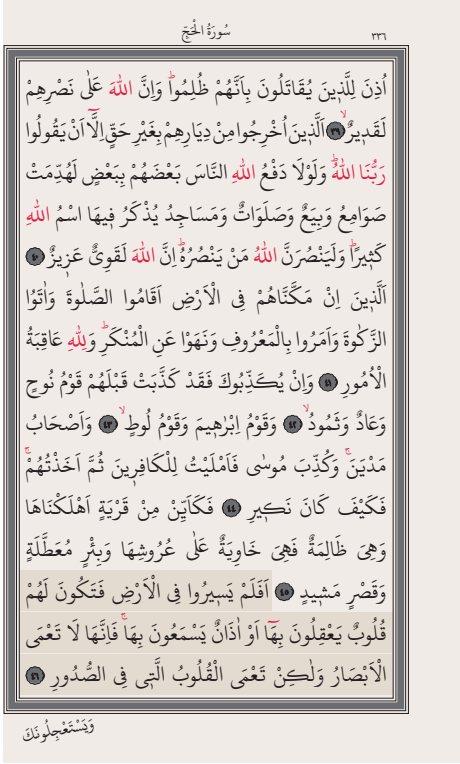 سُورَةُ الْحَجِّ ٣٣٦
اُذِنَ لِلَّذ۪ينَ يُقَاتَلُونَ بِاَنَّهُمْ ظُلِمُواۜ وَاِنَّ اللّٰهَ عَلٰى نَصْرِهِمْ
لَقَد۪يرٌۙ ﴿٣٩﴾ اَلَّذ۪ينَ اُخْرِجُوا مِنْ دِيَارِهِمْ بِغَيْرِ حَقٍّ اِلَّٓا اَنْ يَقُولُوا
رَبُّنَا اللّٰهُۜ وَلَوْلَا دَفْعُ اللّٰهِ النَّاسَ بَعْضَهُمْ بِبَعْضٍ لَهُدِّمَتْ
صَوَامِعُ وَبِيَعٌ وَصَلَوَاتٌ وَمَسَاجِدُ يُذْكَرُ ف۪يهَا اسْمُ اللّٰهِ
كَث۪يرًاۜ وَلَيَنْصُرَنَّ اللّٰهُ مَنْ يَنْصُرُهُۜ اِنَّ اللّٰهَ لَقَوِيٌّ عَز۪يزٌ ﴿٤٠﴾
اَلَّذ۪ينَ اِنْ مَكَّنَّاهُمْ فِي الْاَرْضِ اَقَامُوا الصَّلٰوةَ وَاٰتَوُا
الزَّكٰوةَ وَاَمَرُوا بِالْمَعْرُوفِ وَنَهَوْا عَنِ الْمُنْكَرِۜ وَلِلّٰهِ عَاقِبَةُ
الْاُمُورِ ﴿٤١﴾ وَاِنْ يُكَذِّبُوكَ فَقَدْ كَذَّبَتْ قَبْلَهُمْ قَوْمُ نُوحٍ
وَعَادٌ وَثَمُودُۙ ﴿٤٢﴾ وَقَوْمُ اِبْرٰه۪يمَ وَقَوْمُ لُوطٍۙ ﴿٤٣﴾ وَاَصْحَابُ
مَدْيَنَۚ وَكُذِّبَ مُوسٰى فَاَمْلَيْتُ لِلْكَافِر۪ينَ ثُمَّ اَخَذْتُهُمْۚ
فَكَيْفَ كَانَ نَك۪يرِ ﴿٤٤﴾ فَكَاَيِّنْ مِنْ قَرْيَةٍ اَهْلَكْنَاهَا
وَهِيَ ظَالِمَةٌ فَهِيَ خَاوِيَةٌ عَلٰى عُرُوشِهَا وَبِئْرٍ مُعَطَّلَةٍ
وَقَصْرٍ مَش۪يدٍ ﴿٤٥﴾ اَفَلَمْ يَس۪يرُوا فِي الْاَرْضِ فَتَكُونَ لَهُمْ
قُلُوبٌ يَعْقِلُونَ بِهَٓا اَوْ اٰذَانٌ يَسْمَعُونَ بِهَاۚ فَاِنَّهَا لَا تَعْمَى
الْاَبْصَارُ وَلٰكِنْ تَعْمَى الْقُلُوبُ الَّت۪ي فِي الصُّدُورِ ﴿٤٦﴾
وَيَسْتَعْجِلُونَكَ